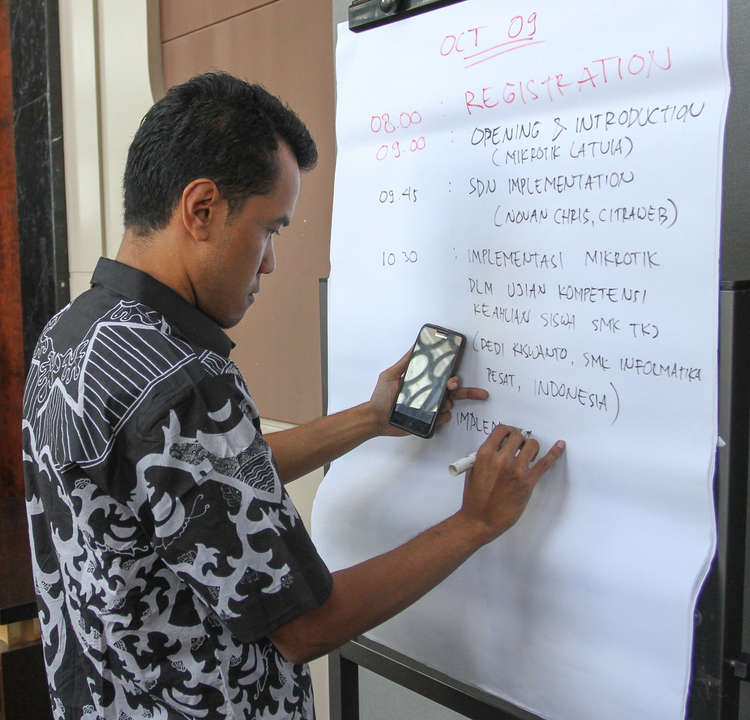 OCT 09
08.00 : REGISTRATION
09.00 : OPENING & INTRODUCTION
(MIKROTIK LATVIA)
09 45 : SDN IMPLEMENTATION
(NOVAN CHRIS, CITRAWEB)
10 30 : IMPLEMENTASI MIKROTIK
DLM UJIAN KOMPETENSI
KEAHLIAN SISWA SMK TKJ
(DEDI KISWANTO, SMK INFORMATIKA
PESAT, INDONESIA)
IMPLEM